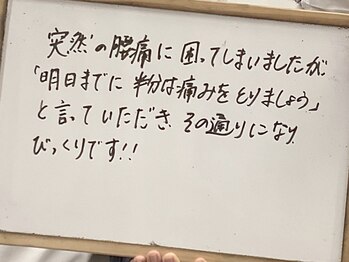 突然の腰痛に困ってしまいましたが
「明日までに半分は痛みをとりましょう」
と言っていただき、その通りになり
びっくりです!!